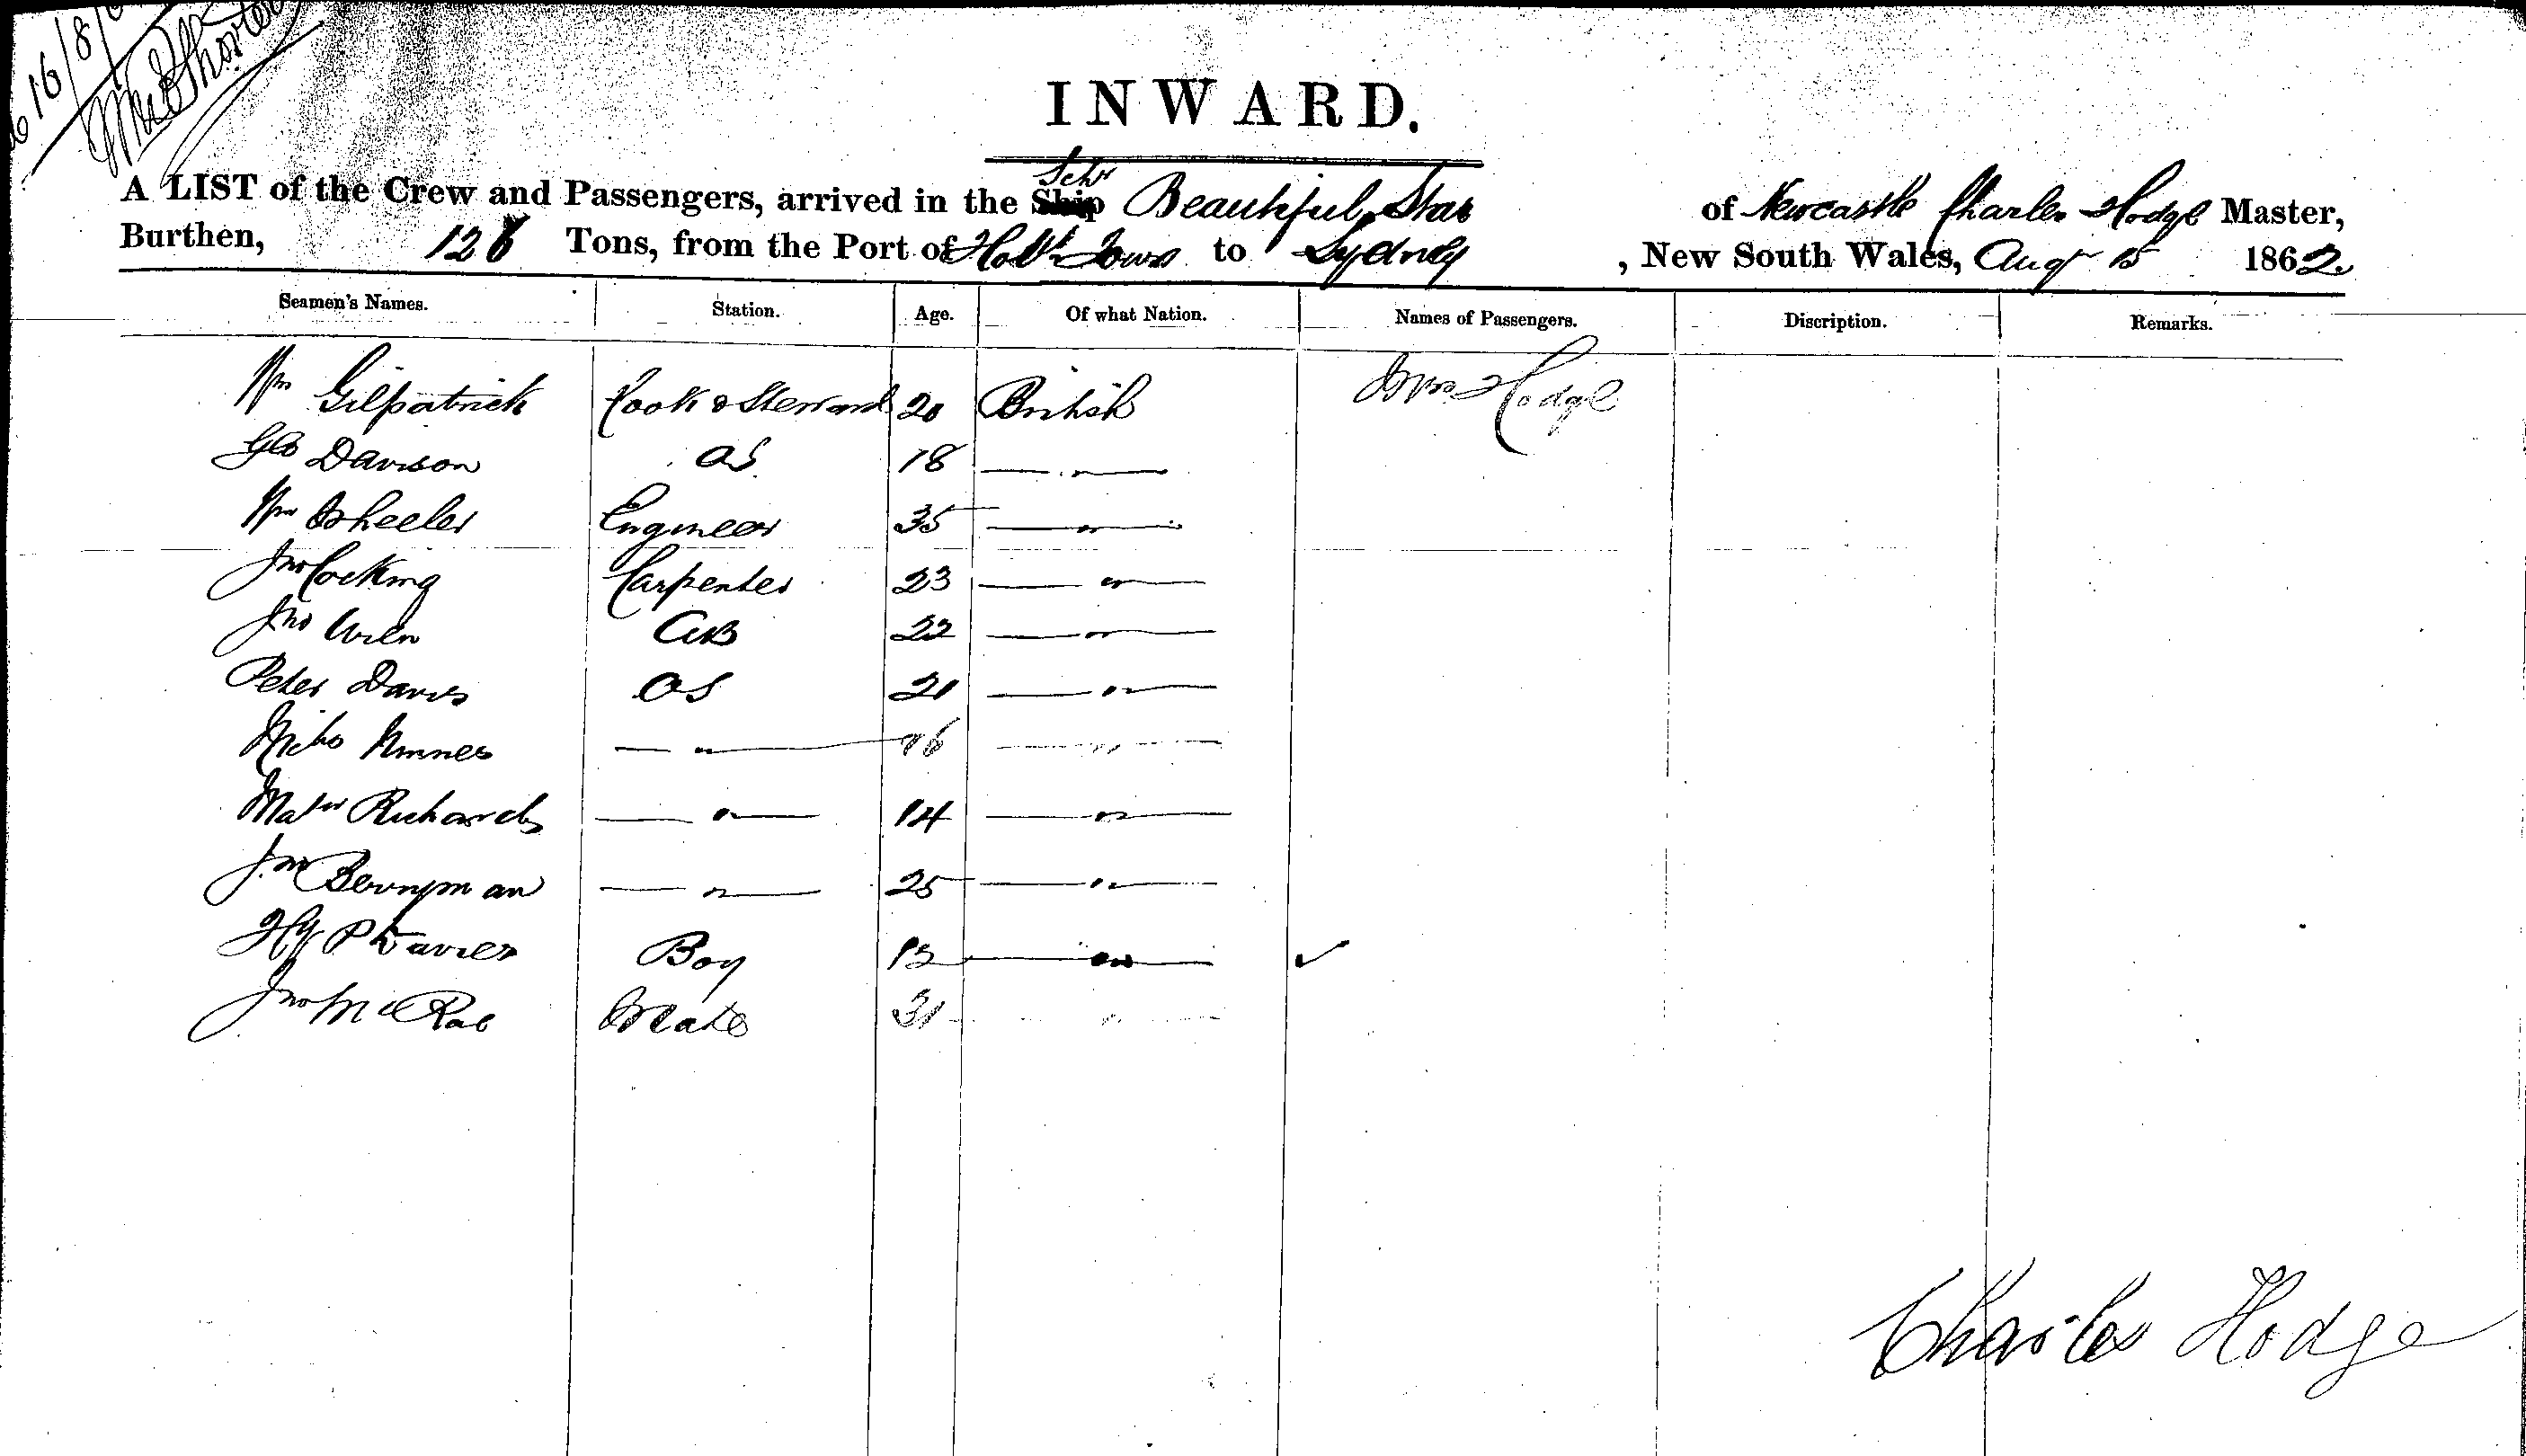 16/8/
INWARD.
A LIST of the Crew and Passengers, arrived in the Ship Schr Beautiful Star of Newcastle Charles Hodge Master,
Burthen, 126 Tons, from the Port of Hobt Town to Sydney, New South Wales, Augt 15 1862.
Seamen's Names. Station. Age. Of what Nation. Names of Passengers. Discription. Remarks.
Wm Gilpatrick Cook & Steward 20 British Mrs Hodge
Geo Davison OS 18 — " —
Wm Wheeler Engineer 35 — " —
Jno Cocking Carpenter 23 — " —
Jno AB 22 — " —
Peter Davis OS 21 — " —
— " — 16 — " —
Matw Richards — " — 14 — " —
Jno Berryman — " — 25 — " —
Hy P Davies Boy 13 — " — ✓
Jno McRae Mate 31 — " —
Charles Hodge